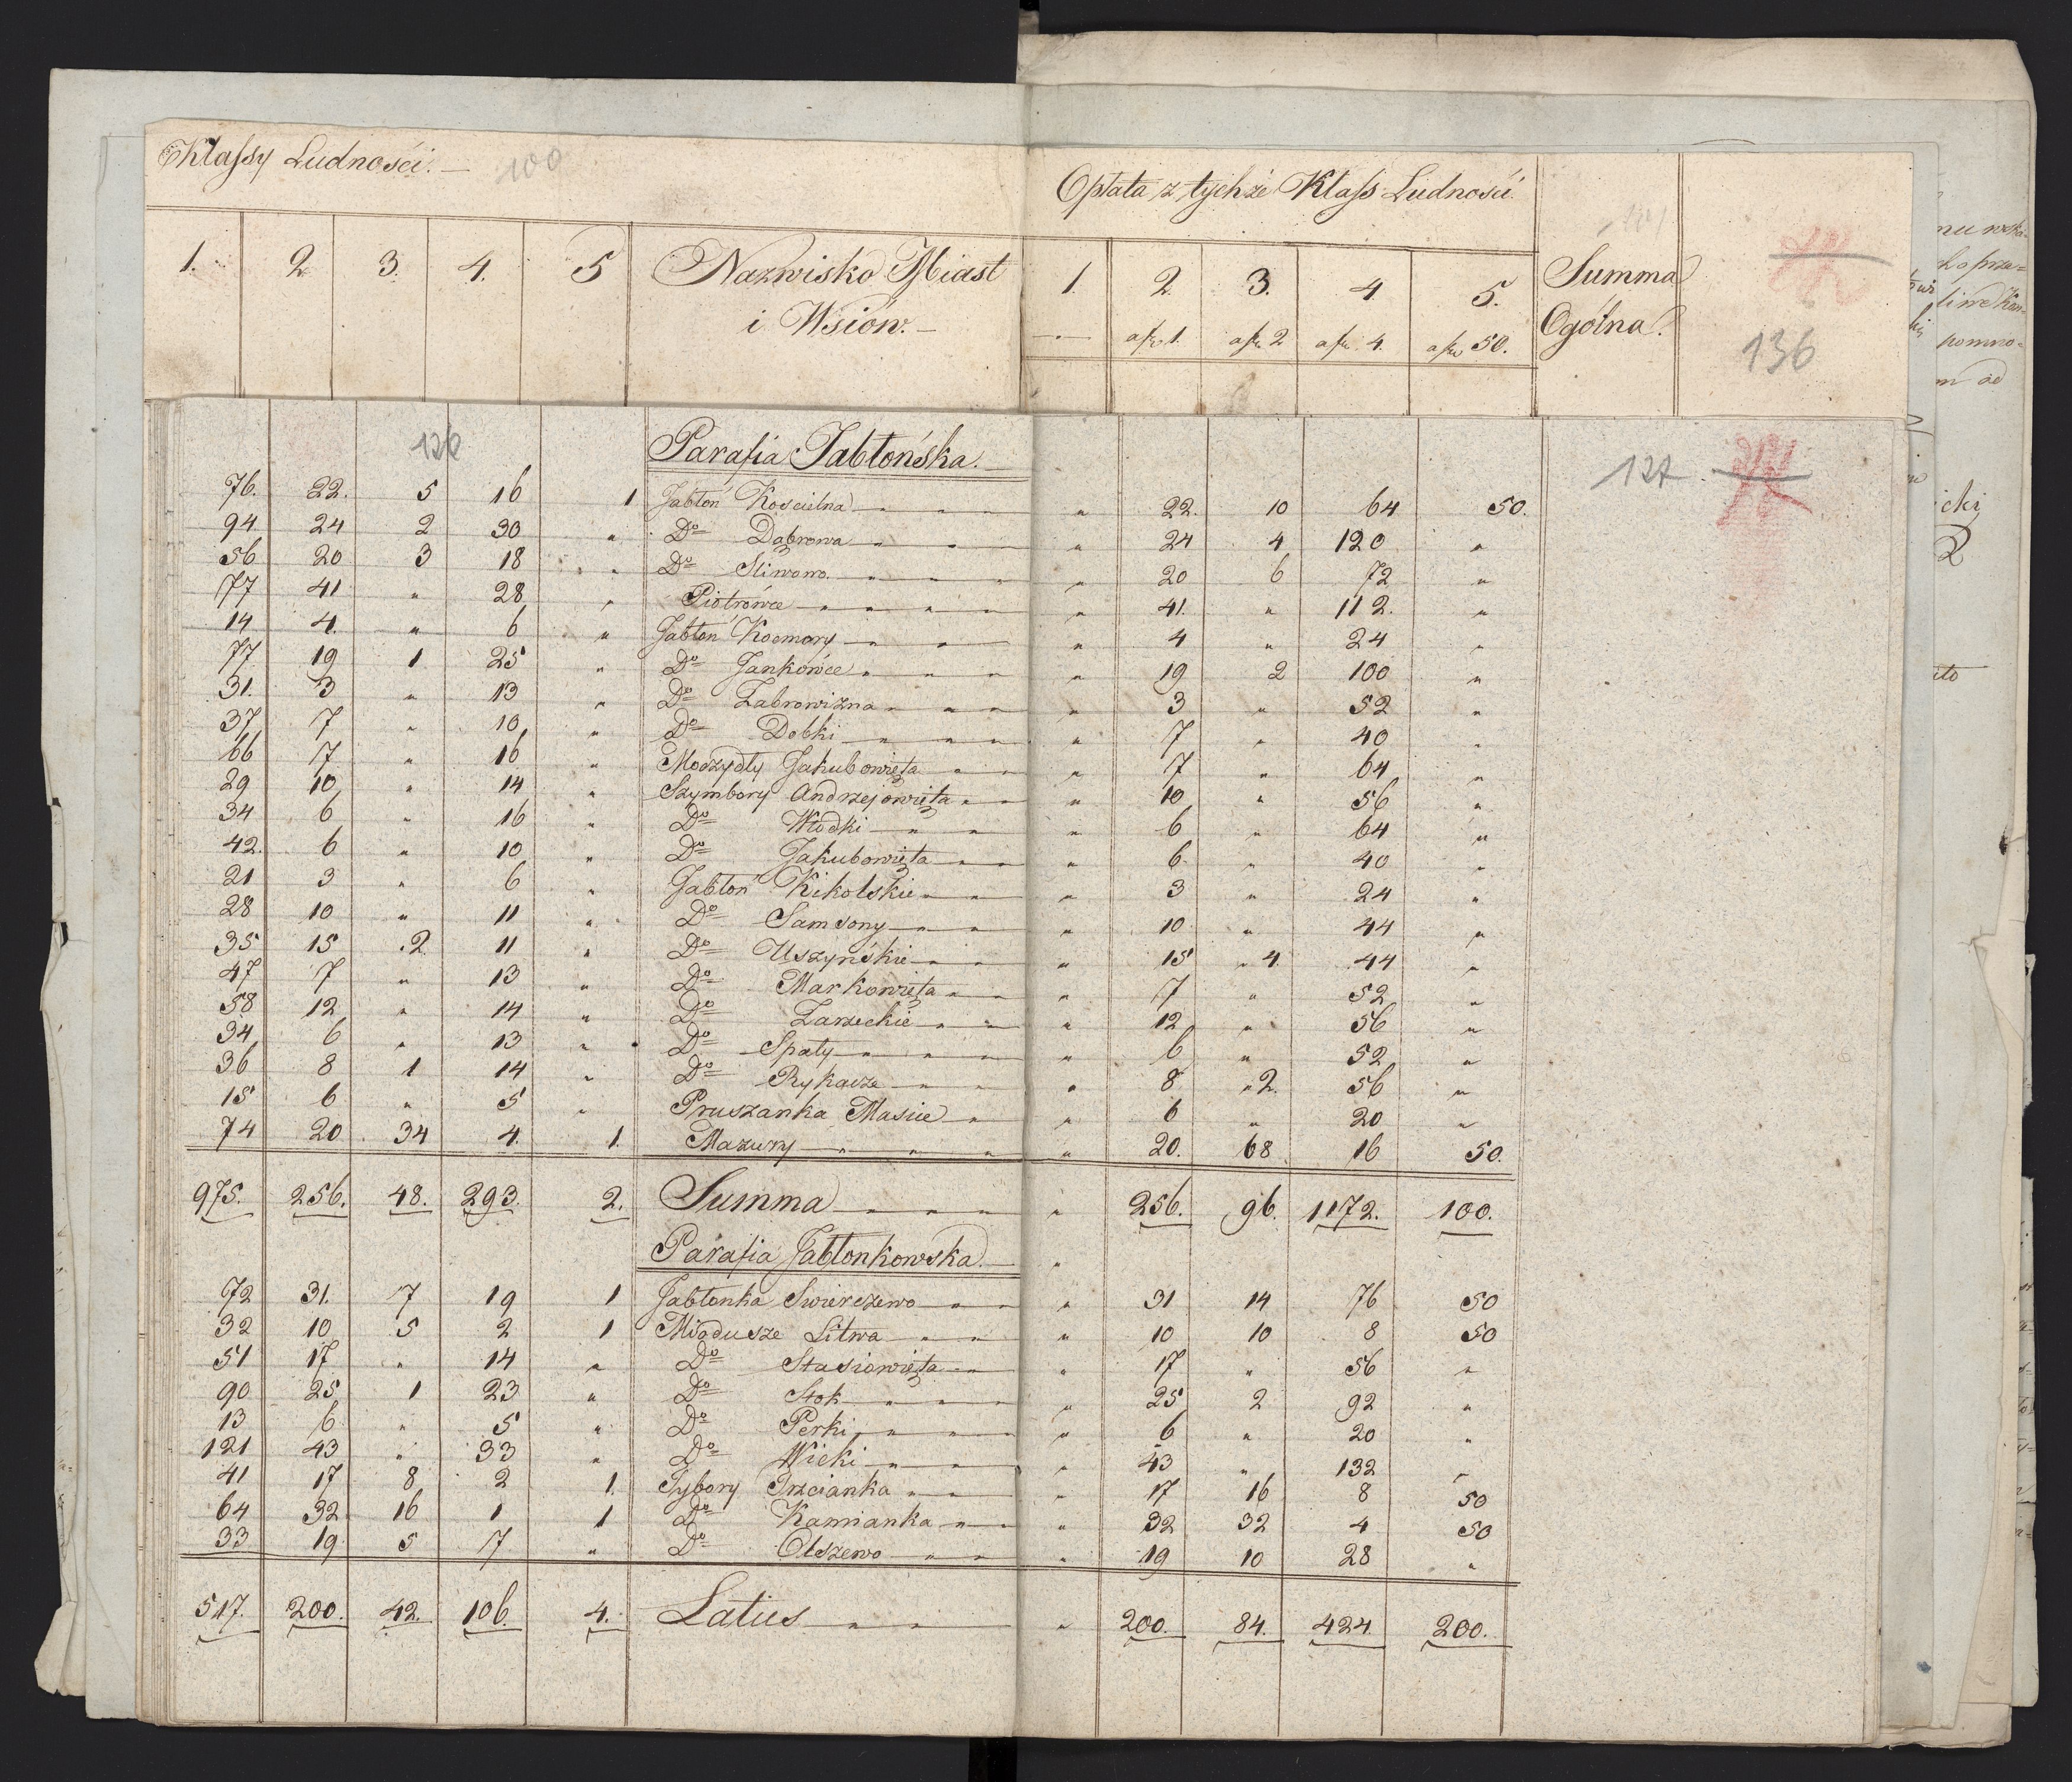 Klassy Ludności. — 100
Opłata z tychże Klass Ludności
1. 2 3. 4. 5 Nazwisko Miast i Wsiow. — 1. 2. 3. 4. 5. Summa Ogólna
a fl. 1. a fl. 2 a fl. 4. a fl. 50.
136
126 Parafia Jabłońska. — 127
76. 22. 5 16 1 Jabłoń Kościelna " 22. 10 64 50.
94 24 2 30 " Do Dąbrowa " 24 4 120 "
56 20 3 18 " Do Sliwowo. " 20 6 72 "
77 41 " 28 " Piotrówce " 41. " 112. "
14 4. " 6 " Jabłoń Kocmory " 4 " 24 "
77 19 1 25 " Do Jankówce " 19 2 100 "
31. 3 " 13 " Do Zabrowizna " 3 " 52 "
37 7 " 10 " Do Dobki " 7 " 40 "
66 7 " 16 " Moczydły Jakubowięta " 7 " 64 "
29 10 " 14 " Szymbory Andrzejowięta " 10 " 56 "
34 6 " 16 " Do Włodki " 6 " 64 "
42. 6 " 10 " Do Jakubowięta " 6 " 40 "
21 3 " 6 " Jabłoń Kikolskie " 3 " 24 "
28 10 " 11 " Do Samsony " 10 " 44 "
35 15 2 11 " Do Uszyńskie " 15 " 4 44 "
47 7 " 13 " Do Markowięta " 7 " 52 "
58 12 " 14 " Do Zarzeckie " 12 " 56 "
34 6 " 13 " Do Spały " 6 " 52 "
36 8 1 14 " Do Rykacze " 8 " 2 56 "
15 6 " 5 " Pruszanka Masice " 6 " 20 "
74 20 34 4. 1. Mazury " 20. 68 16 50.
975. 256. 48. 293. 2. Summa " 256. 96. 1172. 100.
Parafia Jabłonkowska. — "
72 31. 7 19 1 Jabłonka Swierczewo " 31 14 76 50
32 10 5 2 1 Miodusze Litwa " 10 10 8 50
51 17 " 14 " Do Stasiowięta " 17 " 56 "
90 25 1 23 " Do Stok " 25 2 92 "
13 6 " 5 " Do Perki " 6 " 20 "
121 43 " 33 " Do Wicki " 43 " 132 "
41 17 8 2 1. Tybory Trzcianka " 17 16 8 50
64 32 16 1 1 Do Kamianka " 32 32 4 50
33 19 5 7 " Do Olszewo " 19 10 28 "
517. 200. 42. 106. 4. Latus " 200. 84. 424. 200.